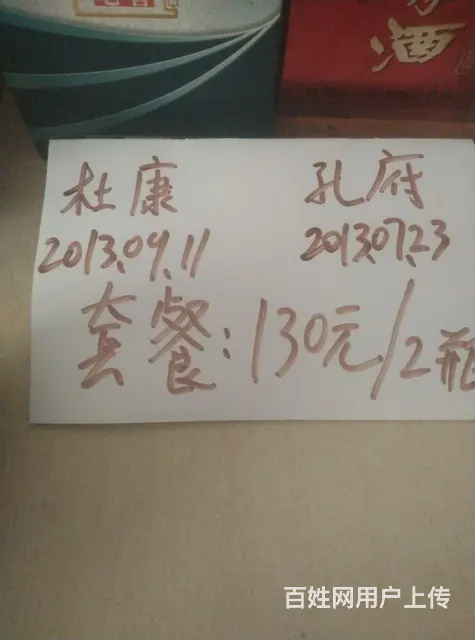 酒
杜康 孔府
2013.09.11 2013.07.23
套餐:130元/2瓶
百姓网用户上传